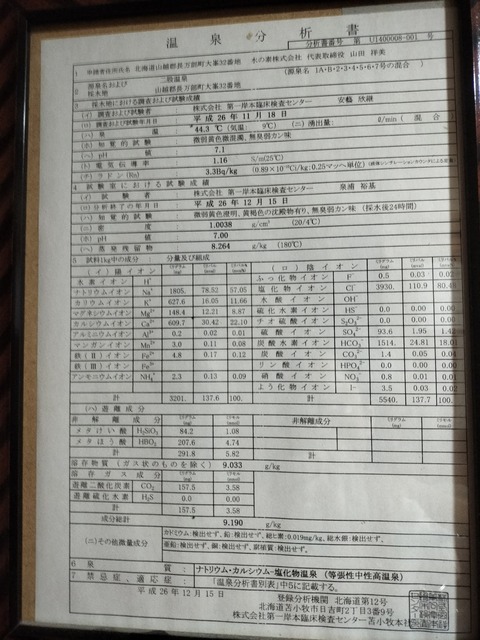 温泉分析書
分析書番号 第 U1400008-001 号
1 申請者住所氏名 北海道山越郡長万部町大峯32番地 水の素株式会社 代表取締役 山田 祥美
2 源泉名および採水地 二股温泉 (源泉名 )A・B・2・3・4・5・6・7号の混合 )
山越郡長万部町大峯32番地
3 採水地における調査および試験成績
(イ) 調査および試験者 株式会社 第一岸本臨床検査センター 安藝 欣継
(ロ) 調査および試験年月日 平成 26 年 11 月 18 日
(ハ) 泉温 44.3 ℃ (気温: 9℃) (ニ) 湧出量: ℓ/min ( 混合
(ホ) 知覚的試験 微弱黄色微混濁、無臭弱カン味
(ヘ) pH値 7.1
(ト) 電気伝導率 1.16 S/m(25℃)
(チ) ラドン (Rn) 3.3Bq/kg (0.89×10⁻¹⁰Ci/kg:0.25マッヘ単位)
4 試験室における試験成績
(イ) 試験者 株式会社 第一岸本臨床検査センター 泉浦 裕基
(ロ) 分析終了の年月日 平成 26 年 12 月 15 日
(ハ) 知覚的試験 微弱黄色澄明、黄褐色の沈殿物有り、無臭弱カン味 (採水後24時間)
(ニ) 密度 1.0038 g/cm³ (20/4℃)
(ホ) pH値 7.00
(ヘ) 蒸発残留物 8.264 g/kg (180℃)
5 試料1kg中の成分: 分量及び組成
(イ) 陽イオン ミリグラム (mg) ミリバル (mval) ミリバル% (mval%)
水素イオン H⁺
ナトリウムイオン Na⁺ 1805. 78.52 57.05
カリウムイオン K⁺ 627.6 16.05 11.66
マグネシウムイオン Mg²⁺ 148.4 12.21 8.87
カルシウムイオン Ca²⁺ 609.7 30.42 22.10
アルミニウムイオン Al³⁺ 0.2 0.02 0.01
マンガンイオン Mn²⁺ 3.0 0.11 0.08
鉄(Ⅱ)イオン Fe²⁺ 4.8 0.17 0.12
鉄(Ⅲ)イオン Fe³⁺
アンモニウムイオン NH₄⁺ 2.3 0.13 0.09
計 3201. 137.6 100.
(ロ) 陰イオン ミリグラム (mg) ミリバル (mval) ミリバル%
ふっ化物イオン F⁻ 0.5 0.03 0.02
塩化物イオン Cl⁻ 3930. 110.9 80.48
水酸イオン OH⁻
硫化水素イオン HS⁻ 0.0 0.00 0.00
チオ硫酸イオン S₂O₃²⁻ 0.0 0.00 0.00
硫酸イオン SO₄²⁻ 93.6 1.95 1.42
炭酸水素イオン HCO₃⁻ 1514. 24.81 18.01
炭酸イオン CO₃²⁻ 1.4 0.05 0.04
リン酸イオン HPO₄²⁻ 0.0 0.00 0.00
硝酸イオン NO₃⁻ 0.8 0.01 0.01
よう化物イオン I⁻ 3.5 0.03 0.02
計 5540. 137.7 100.
(ハ) 遊離成分
非解離成分 ミリグラム (mg) ミリモル (mmol)
メタけい酸 H₂SiO₃ 84.2 1.08
メタほう酸 HBO₂ 207.6 4.74
計 291.8 5.82
非解離成分 ミリグラム (mg) ミリモル (mmol)
計
溶存物質 (ガス状のものを除く) 9.033 g/kg
溶存ガス成分 ミリグラム (mg) ミリモル (mmol)
遊離二酸化炭素 CO₂ 157.5 3.58
遊離硫化水素 H₂S 0.0 0.00
計 157.5 3.58
成分総計 9.190 g/kg
(ニ) その他微量成分 カドミウム:検出せず、鉛:検出せず、総ヒ素:0.019mg/kg、総水銀:検出せず、
亜鉛:検出せず、銅:検出せず、腐植質:検出せず。
6 泉質: ナトリウム・カルシウム-塩化物温泉 (等張性中性高温泉)
7 禁忌症、適応症: 「温泉分析書別表」中5に記載する。
平成 26 年 12 月 15 日
登録分析機関 北海道第12号
北海道苫小牧市日吉町2丁目3番9号
株式会社第一岸本臨床検査センター苫小牧本社